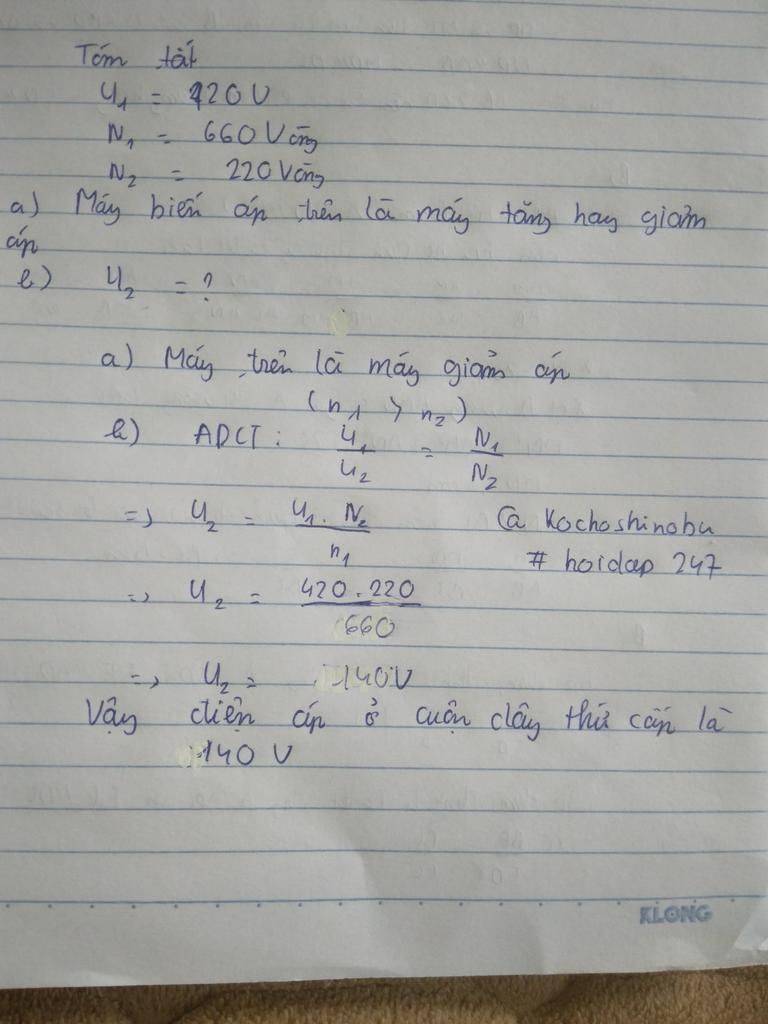 Tóm tắt
U1 = 420V
N1 = 660 Vòng
N2 = 220 Vòng
a) Máy biến áp trên là máy tăng hay giảm
áp
b) U2 = ?
a) Máy trên là máy giảm áp
(n1 > n2)
b) ADCT: U1/U2 = N1/N2
=> U2 = U1.N2/n1
@ Kochoshinobu
# hoidap 247
=> U2 = 420.220/660
=> U2 = 140V
Vậy điện áp ở cuộn dây thứ cấp là
140 V
KLONG